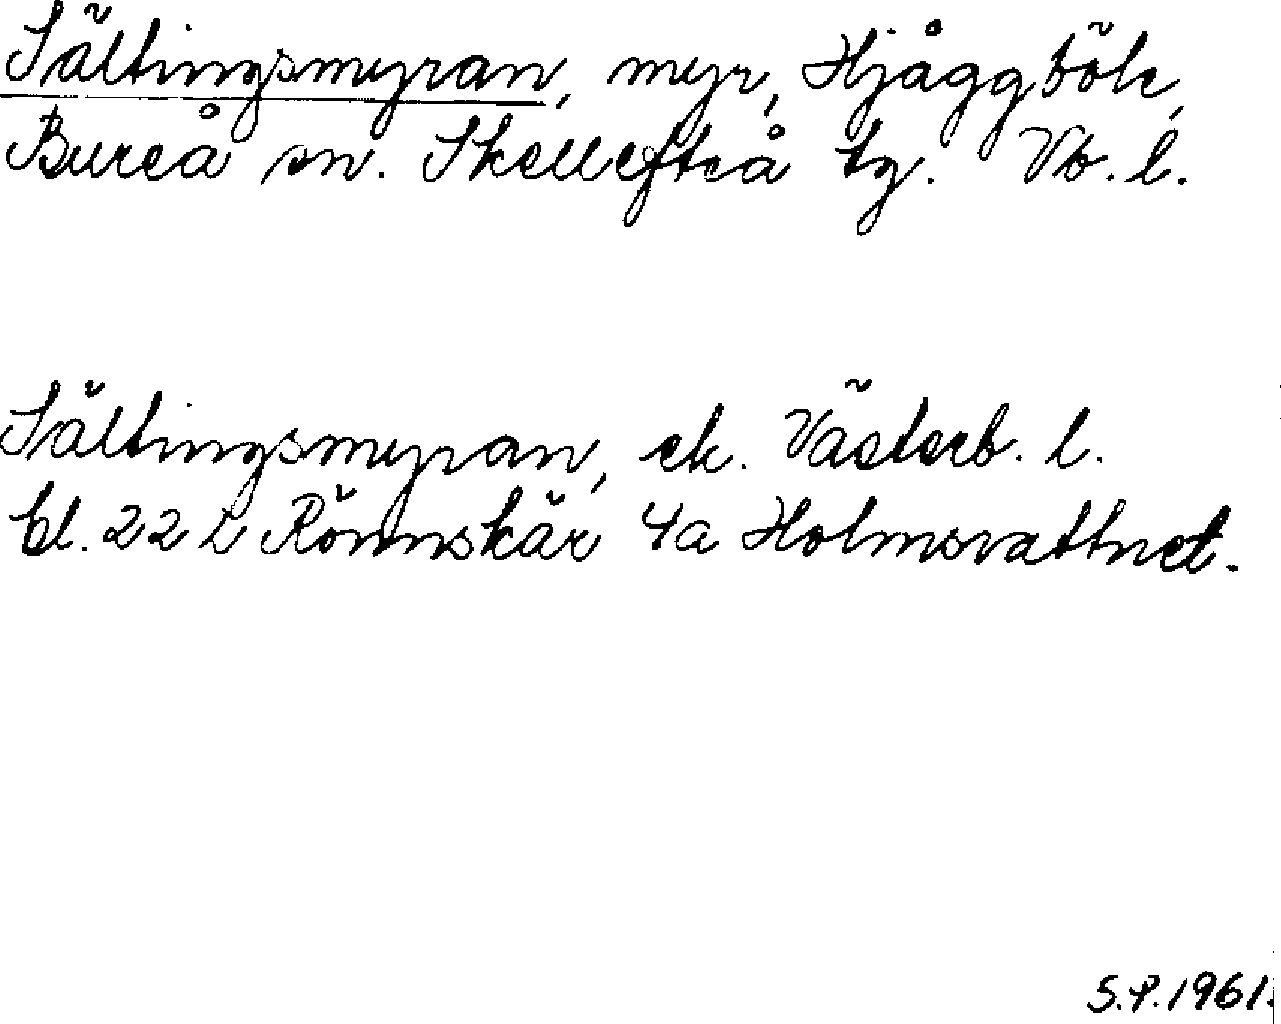 Sältingsmyran, myr, Hjåggböle,
Bureå sn. Skellefteå tg. Vb. l.
Sältingsmyran, ek. Västerb. l.
bl. 22 L Rönnskär 4a Holmsvattnet.
S.P. 1961.